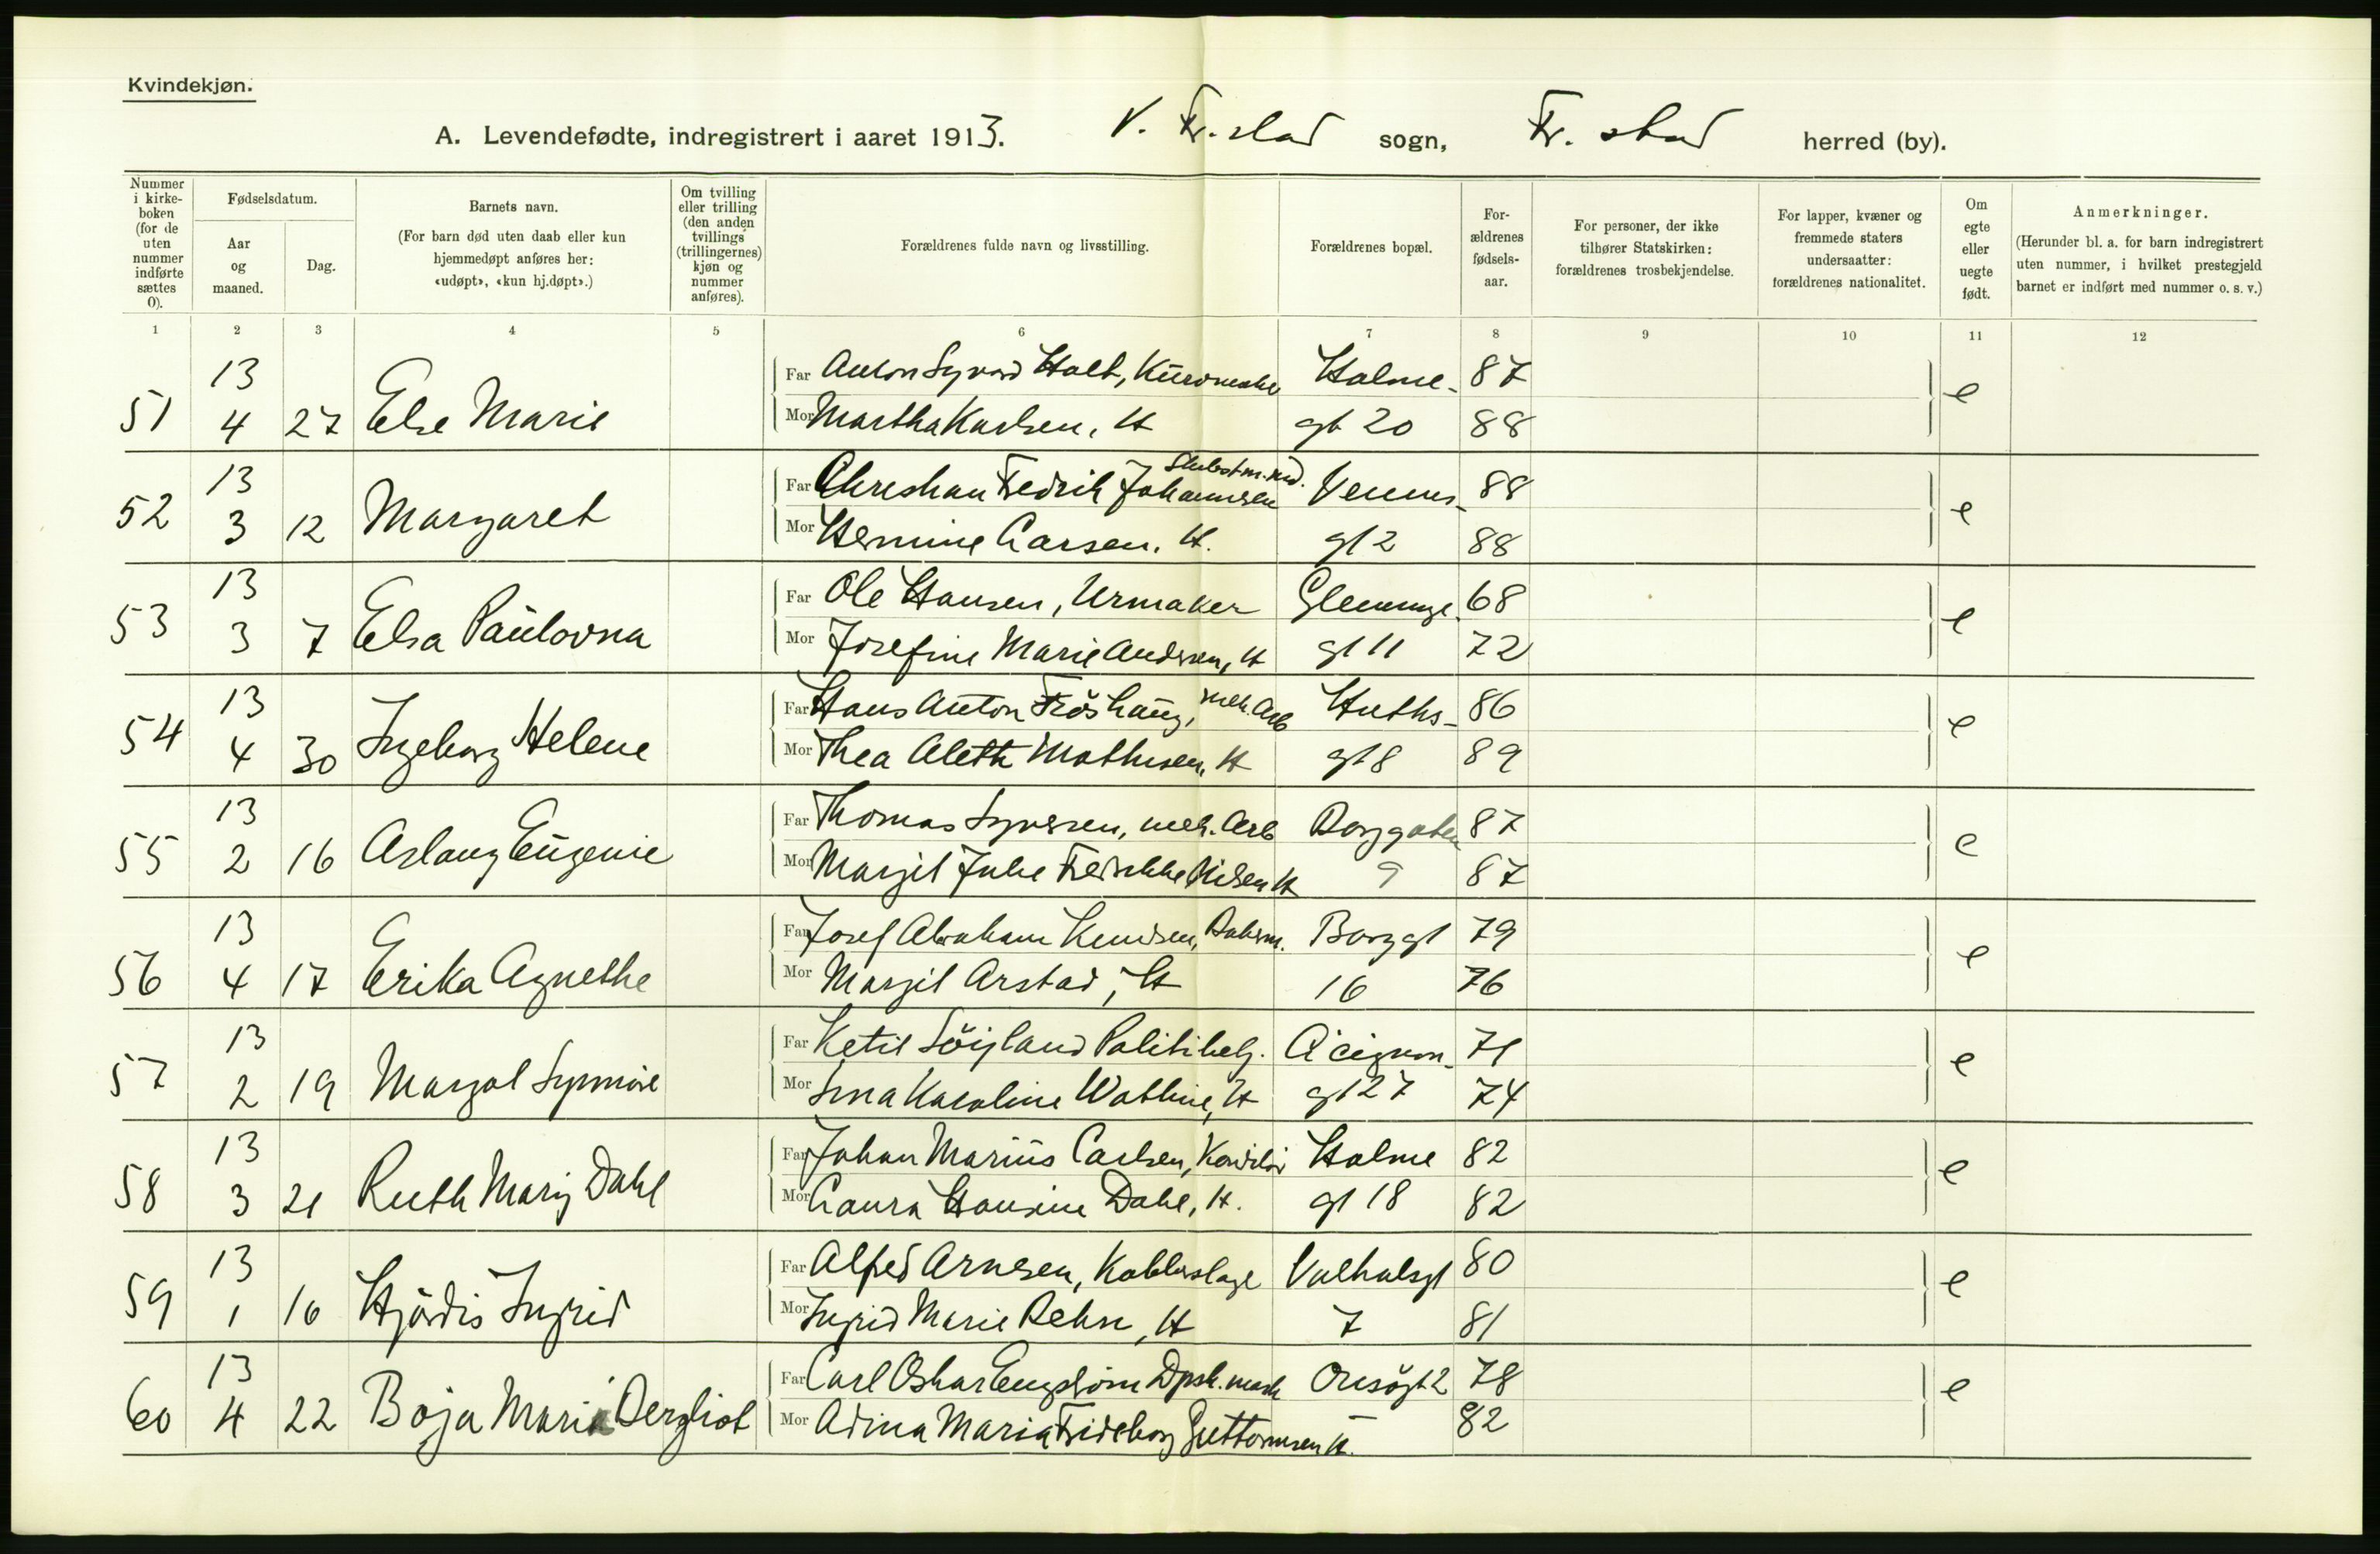 Kvindekjøn.
A. Levendefødte, indregistrert i aaret 1913. V. Fr.stad sogn, Fr. stad herred (by).
Nummer i kirkeboken (for de uten nummer indførte sættes 0).
Fødselsdatum.
Aar og maaned.
Dag.
Barnets navn.
(For barn død uten daab eller kun hjemmedøpt anføres her: «udøpt», «kun hj.døpt».)
Om tvilling eller trilling (den anden tvillings (trillingernes) kjøn og nummer anføres).
Forældrenes fulde navn og livsstilling.
Forældrenes bopæl.
Forældrenes fødselsaar.
For personer, der ikke tilhører Statskirken: forældrenes trosbekjendelse.
For lapper, kvæner og fremmede staters undersaatter: forældrenes nationalitet.
Om egte eller uegte født.
Anmerkninger.
(Herunder bl. a. for barn indregistrert uten nummer, i hvilket prestegjeld barnet er indført med nummer o. s. v.)
1 2 3 4 5 6 7 8 9 10 11 12
13 Far Anton Syvord Holt, Kurvmaker Holme- 87
51 4 27 Else Marie Mor Martha Karlsen, H gt 20 88 e
13 Far Christian Fredrik Johannesen Venus- 88
52 3 12 Margaret Mor Hermine Larsen. H. gt 2 88 e
13 Far Ole Hansen, Urmaker Glemmge. 68
53 3 7 Elsa Paulovna Mor Josefine Marie Andersen, H gt 11 72 e
13 Far Hans Anton Fröshaug, mek. Arb Huths- 86
54 4 30 Ingeborg Helene Mor Thea Aleth Mathisen, H gt 8 89 e
13 Far Thomas Syversen, mek. Arb Borggaten 87
55 2 16 Aslaug Eugenie Mor Margit Julie Fredrikke Nilsen H 9 87 e
13 Far Josef Abraham Knudsen, Borggt 79
56 4 17 Erika Agnethe Mor Margit Arstad, H 16 76 e
13 Far Ketil Söyland Politibetj. 71
57 2 19 Margot Synnöve Mor Karoline H gt 27 74 e
13 Far Johan Marius Carlsen, Konditor Holme 82
58 3 21 Ruth Mary Dahl Mor Laura Hansine Dahl, H. gt 18 82 e
13 Far Alfred Arnesen, Kobberslage Valhalsgt 80
59 1 16 Hjördis Ingrid Mor Ingrid Marie Rehn, H 7 81 e
13 Far Carl Oskar Engström Dpsk. mask Onsögt 2 78
60 4 22 Maria Bergliot Mor Adina Maria Frideborg Guttormsen H. 82 e